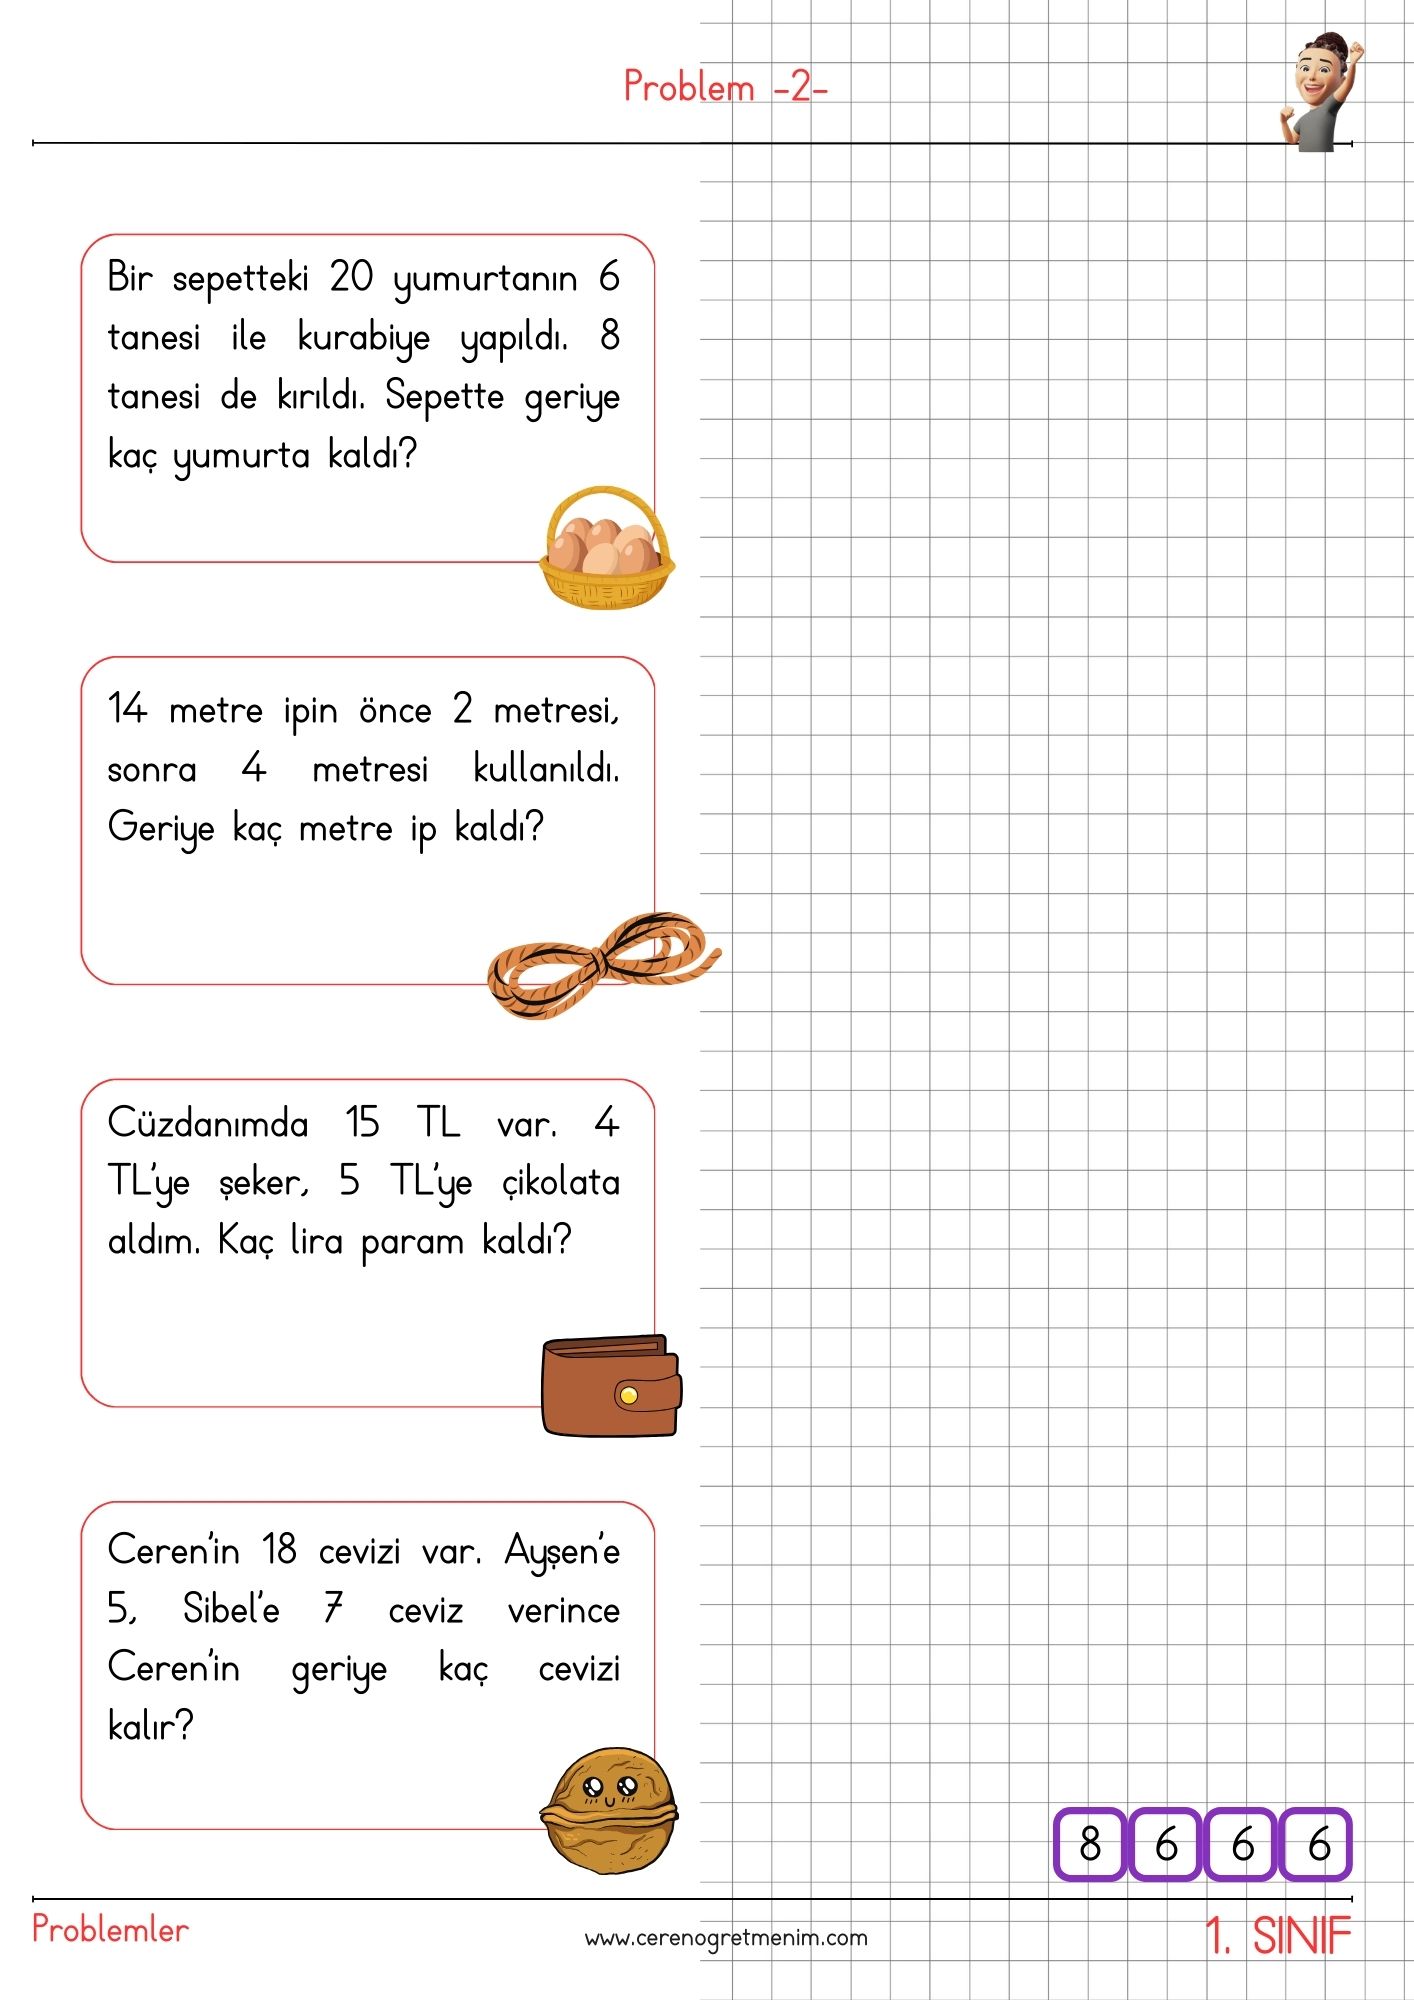 Problem -2-
Bir sepetteki 20 yumurtanın 6
tanesi ile kurabiye yapıldı. 8
tanesi de kırıldı. Sepette geriye
kaç yumurta kaldı?
14 metre ipin önce 2 metresi,
sonra 4 metresi kullanıldı.
Geriye kaç metre ip kaldı?
Cüzdanımda 15 TL var. 4
TL'ye şeker, 5 TL'ye çikolata
aldım. Kaç lira param kaldı?
Ceren'in 18 cevizi var. Ayşen'e
5, Sibel'e 7 ceviz verince
Ceren'in geriye kaç cevizi
kalır?
8 6 6 6
Problemler
www.cerenogretmenim.com
1. SINIF